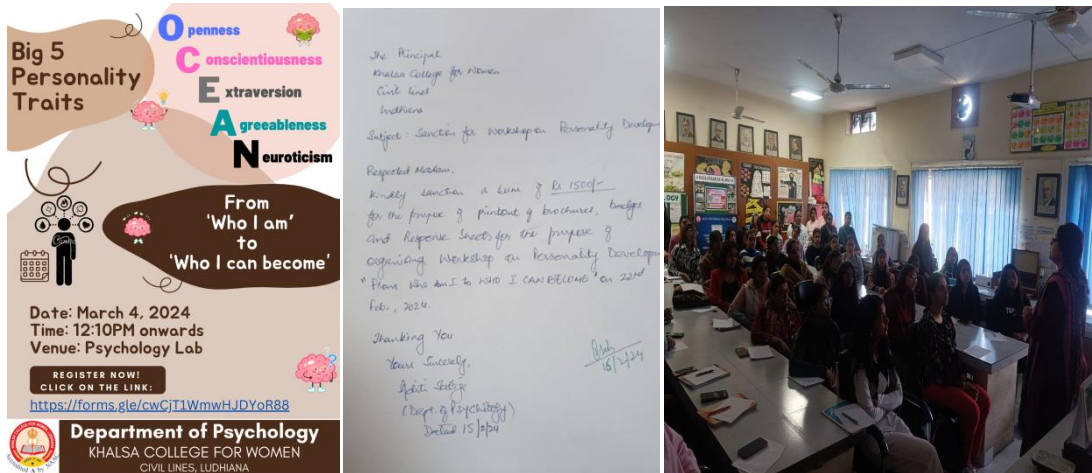 Big 5
Personality
Traits
Openness
Conscientiousness
Extraversion
Agreeableness
Neuroticism
From
'Who I am'
to
'Who I can become'
Date: March 4, 2024
Time: 12:10PM onwards
Venue: Psychology Lab
REGISTER NOW!
CLICK ON THE LINK:
https://forms.gle/cwCjT1WmwHJDYoR88
Department of Psychology
KHALSA COLLEGE FOR WOMEN
CIVIL LINES, LUDHIANA
The Principal
Khalsa College for Women
Civil Lines
Ludhiana
Subject: Sanction for Workshop on Personality Developm
Respected Madam,
Kindly sanction a sum of Rs 1500/-
for the purpose of printout of brochures, badges
and Response Sheets for the purpose of
organising Workshop on Personality Developm
Who Am I to WHO I CAN BECOME" on 22nd
Feb., 2024.
Thanking You
Yours Sincerely,
(Dept. of Psychology)
Dated 15/2/24
15/2/24